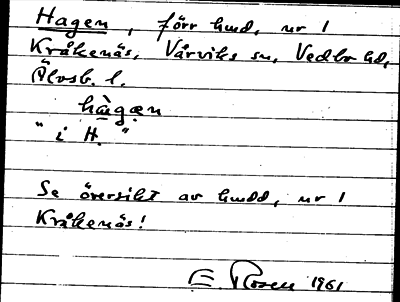 Hagen, förr hmd, nr 1
Kråkenäs, Vårviks sn, Vedbo hd,
Älvsb. l.
hàgæn
"i H."
Se översikt av hmdd, nr 1
Kråkenäs!
E. Rosen 1961